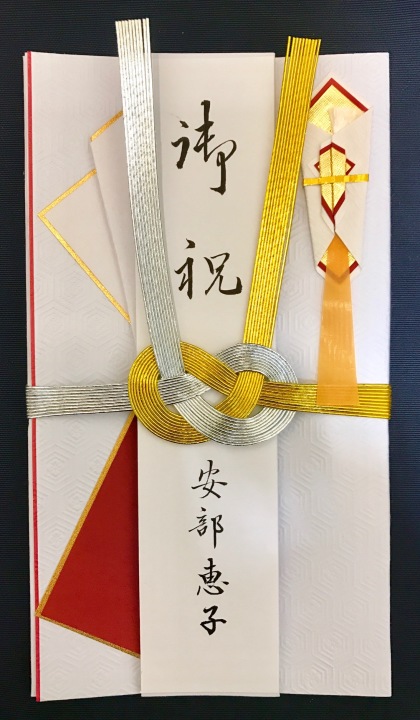 御祝
安部恵子